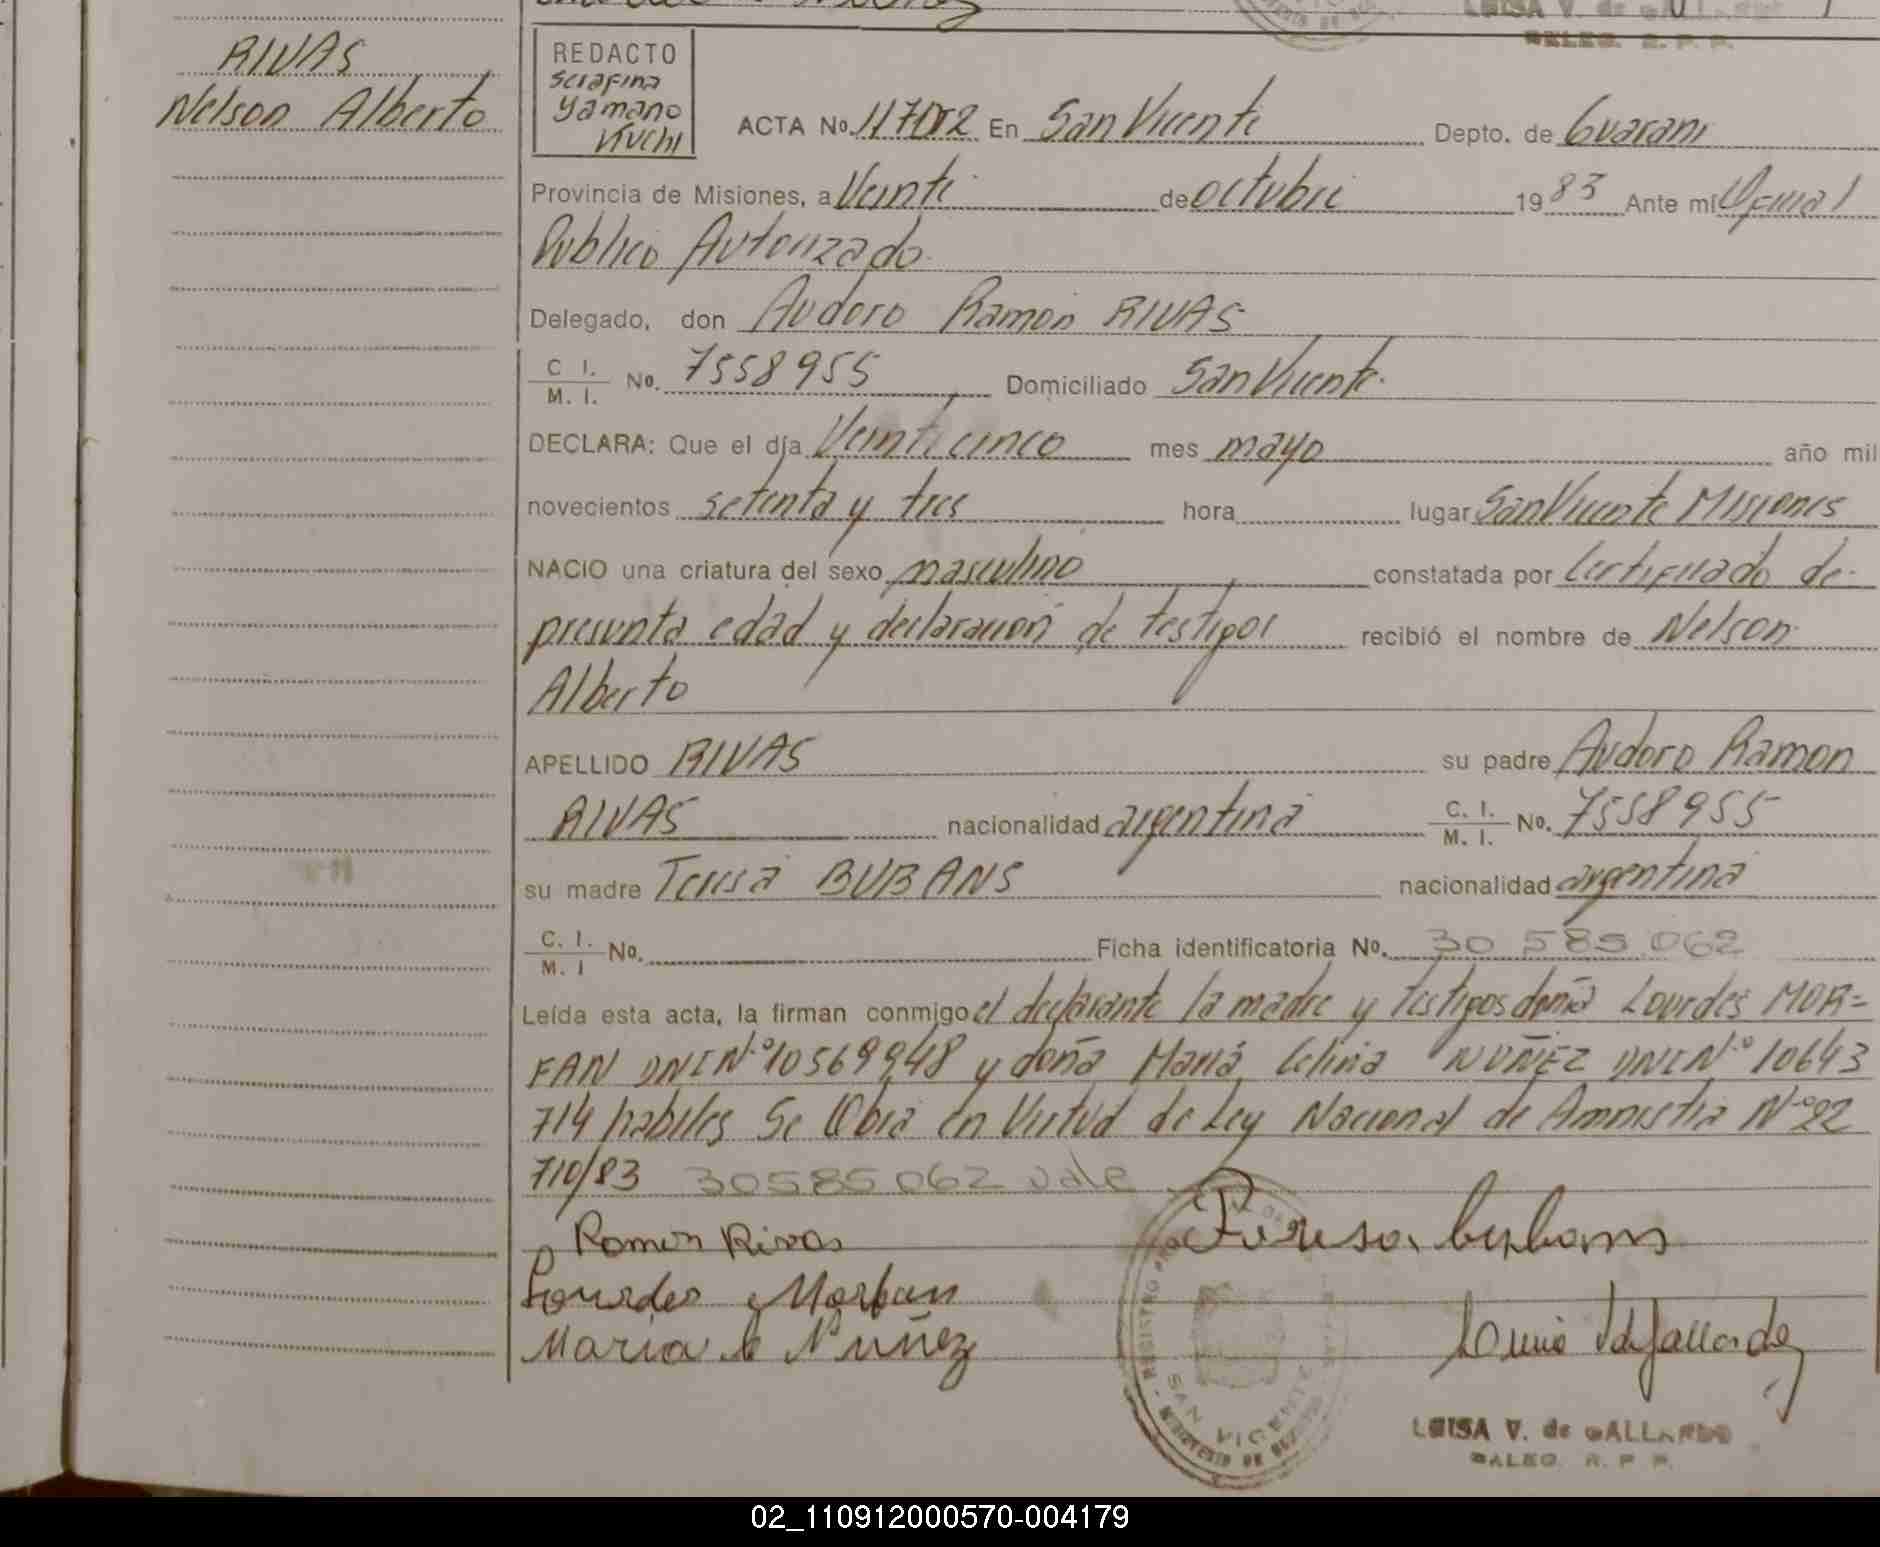 RIVAS
Nelson Alberto
REDACTO
Serafina
Yamano
Kiuchi
ACTA No. En San Vicente Depto. de Guarani
Provincia de Misiones, a Veinte de octubre 1983 Ante mí Oficial
Publico Autorizado
Delegado, don Audoro Ramon RIVAS
C. I. / M. I. No. 7558955 Domiciliado San Vicente.
DECLARA: Que el día Veinticinco mes mayo año mil
novecientos setenta y tres hora lugar San Vicente Misiones
NACIO una criatura del sexo masculino constatada por Certificado de
presunta edad y declaración de testigos recibió el nombre de Nelson
Alberto
APELLIDO RIVAS su padre Audoro Ramon
RIVAS nacionalidad argentina C. I. / M. I. No. 7558955
su madre Teresa BUBANS nacionalidad argentina
C. I. / M. I No. Ficha identificatoria No. 30 585.062
Leída esta acta, la firman conmigo el declarante la madre y testigos doña Lourdes MOR=
FAN DNI N.º 10569948 y doña María Celina NUÑEZ DNI N.º 10643
714 habiles Se labra en Virtud de Ley Nacional de Amnistia N.º 22
710/83 30585062 vale
Ramon Rivas Teresa bubans
Lourdes Morfan
Maria Nuñez
REGISTRO
SAN VICENTE
MINISTERIO DE
LUISA V. de GALLARDO
DELEG. R. P. P.
02_110912000570-004179